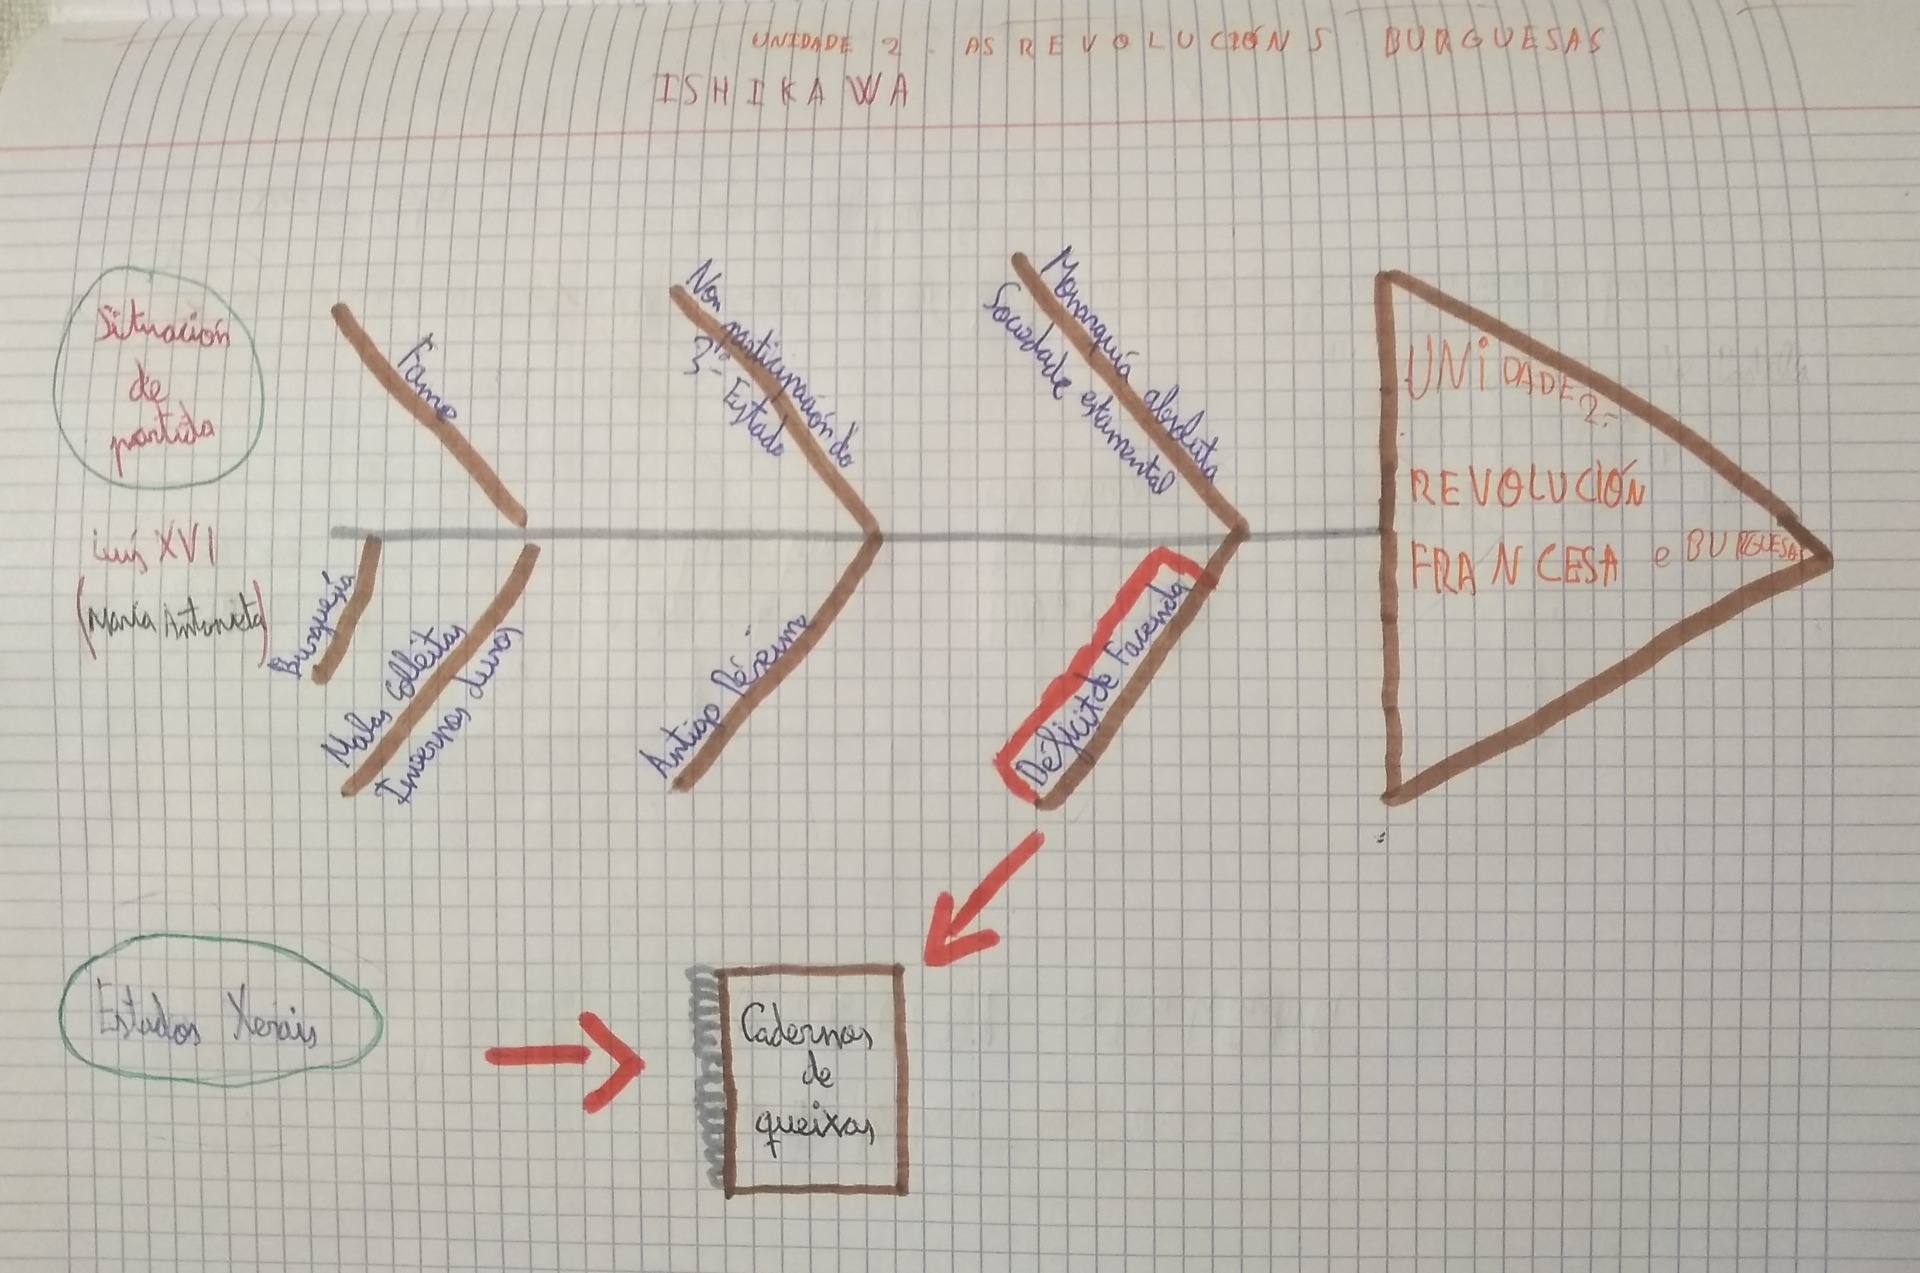 UNIDADE 2 - AS REVOLUCIÓNS BURGUESAS
ISHIKAWA
Situación
de
partida
Luís XVI
(María Antonieta)
Fame
Non participación do
3º Estado
Monarquía absoluta
Sociedade estamental
Burguesía
Malas colleitas
Invernos duros
Antigo Réxime
Déficit de Facenda
UNIDADE 2-
REVOLUCIÓN
FRANCESA e BURGUESAS
Estados Xerais
Cadernos
de
queixas